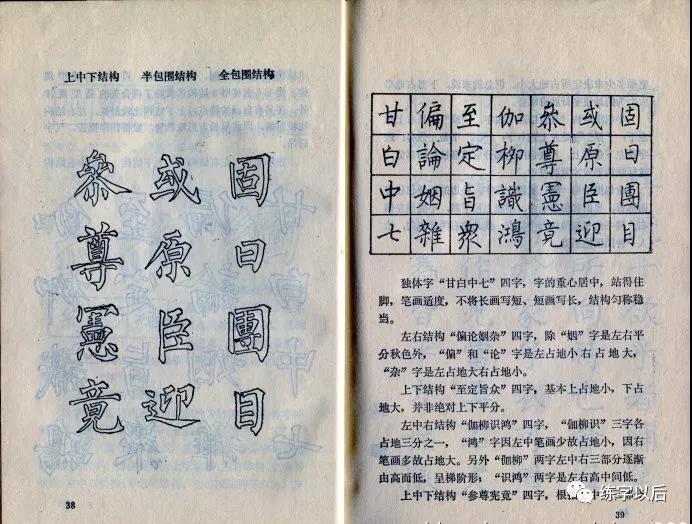 上中下结构 半包围结构 全包围结构
叅 或 固
尊 原 日
憲 臣 團
竟 迎 目
38
甘 偏 至 伽 叅 或 固
白 論 定 柳 尊 原 日
中 姻 旨 識 憲 臣 團
七 雜 衆 鴻 竟 迎 目
独体字“甘白中七”四字，字的重心居中，站得住
脚，笔画适度，不将长画写短、短画写长，结构匀称稳
当。
左右结构“偏论姻杂”四字，除“姻”字是左右平
分秋色外，“偏”和“论”字是左占地小右占地大，
“杂”字是左占地大右占地小。
上下结构“至定旨众”四字，基本上占地小，下占
地大，并非绝对上下平分。
左中右结构“伽柳识鸿”四字，“伽柳识”三字各
占地三分之一，“鸿”字因左中笔画少故占地小，因右
笔画多故占地大。另外“伽柳”两字左中右三部分逐渐
由高而低，呈梯阶形；“识鸿”两字是左右高中间低。
上中下结构“参尊宪竟”四字，根
39
练字以后